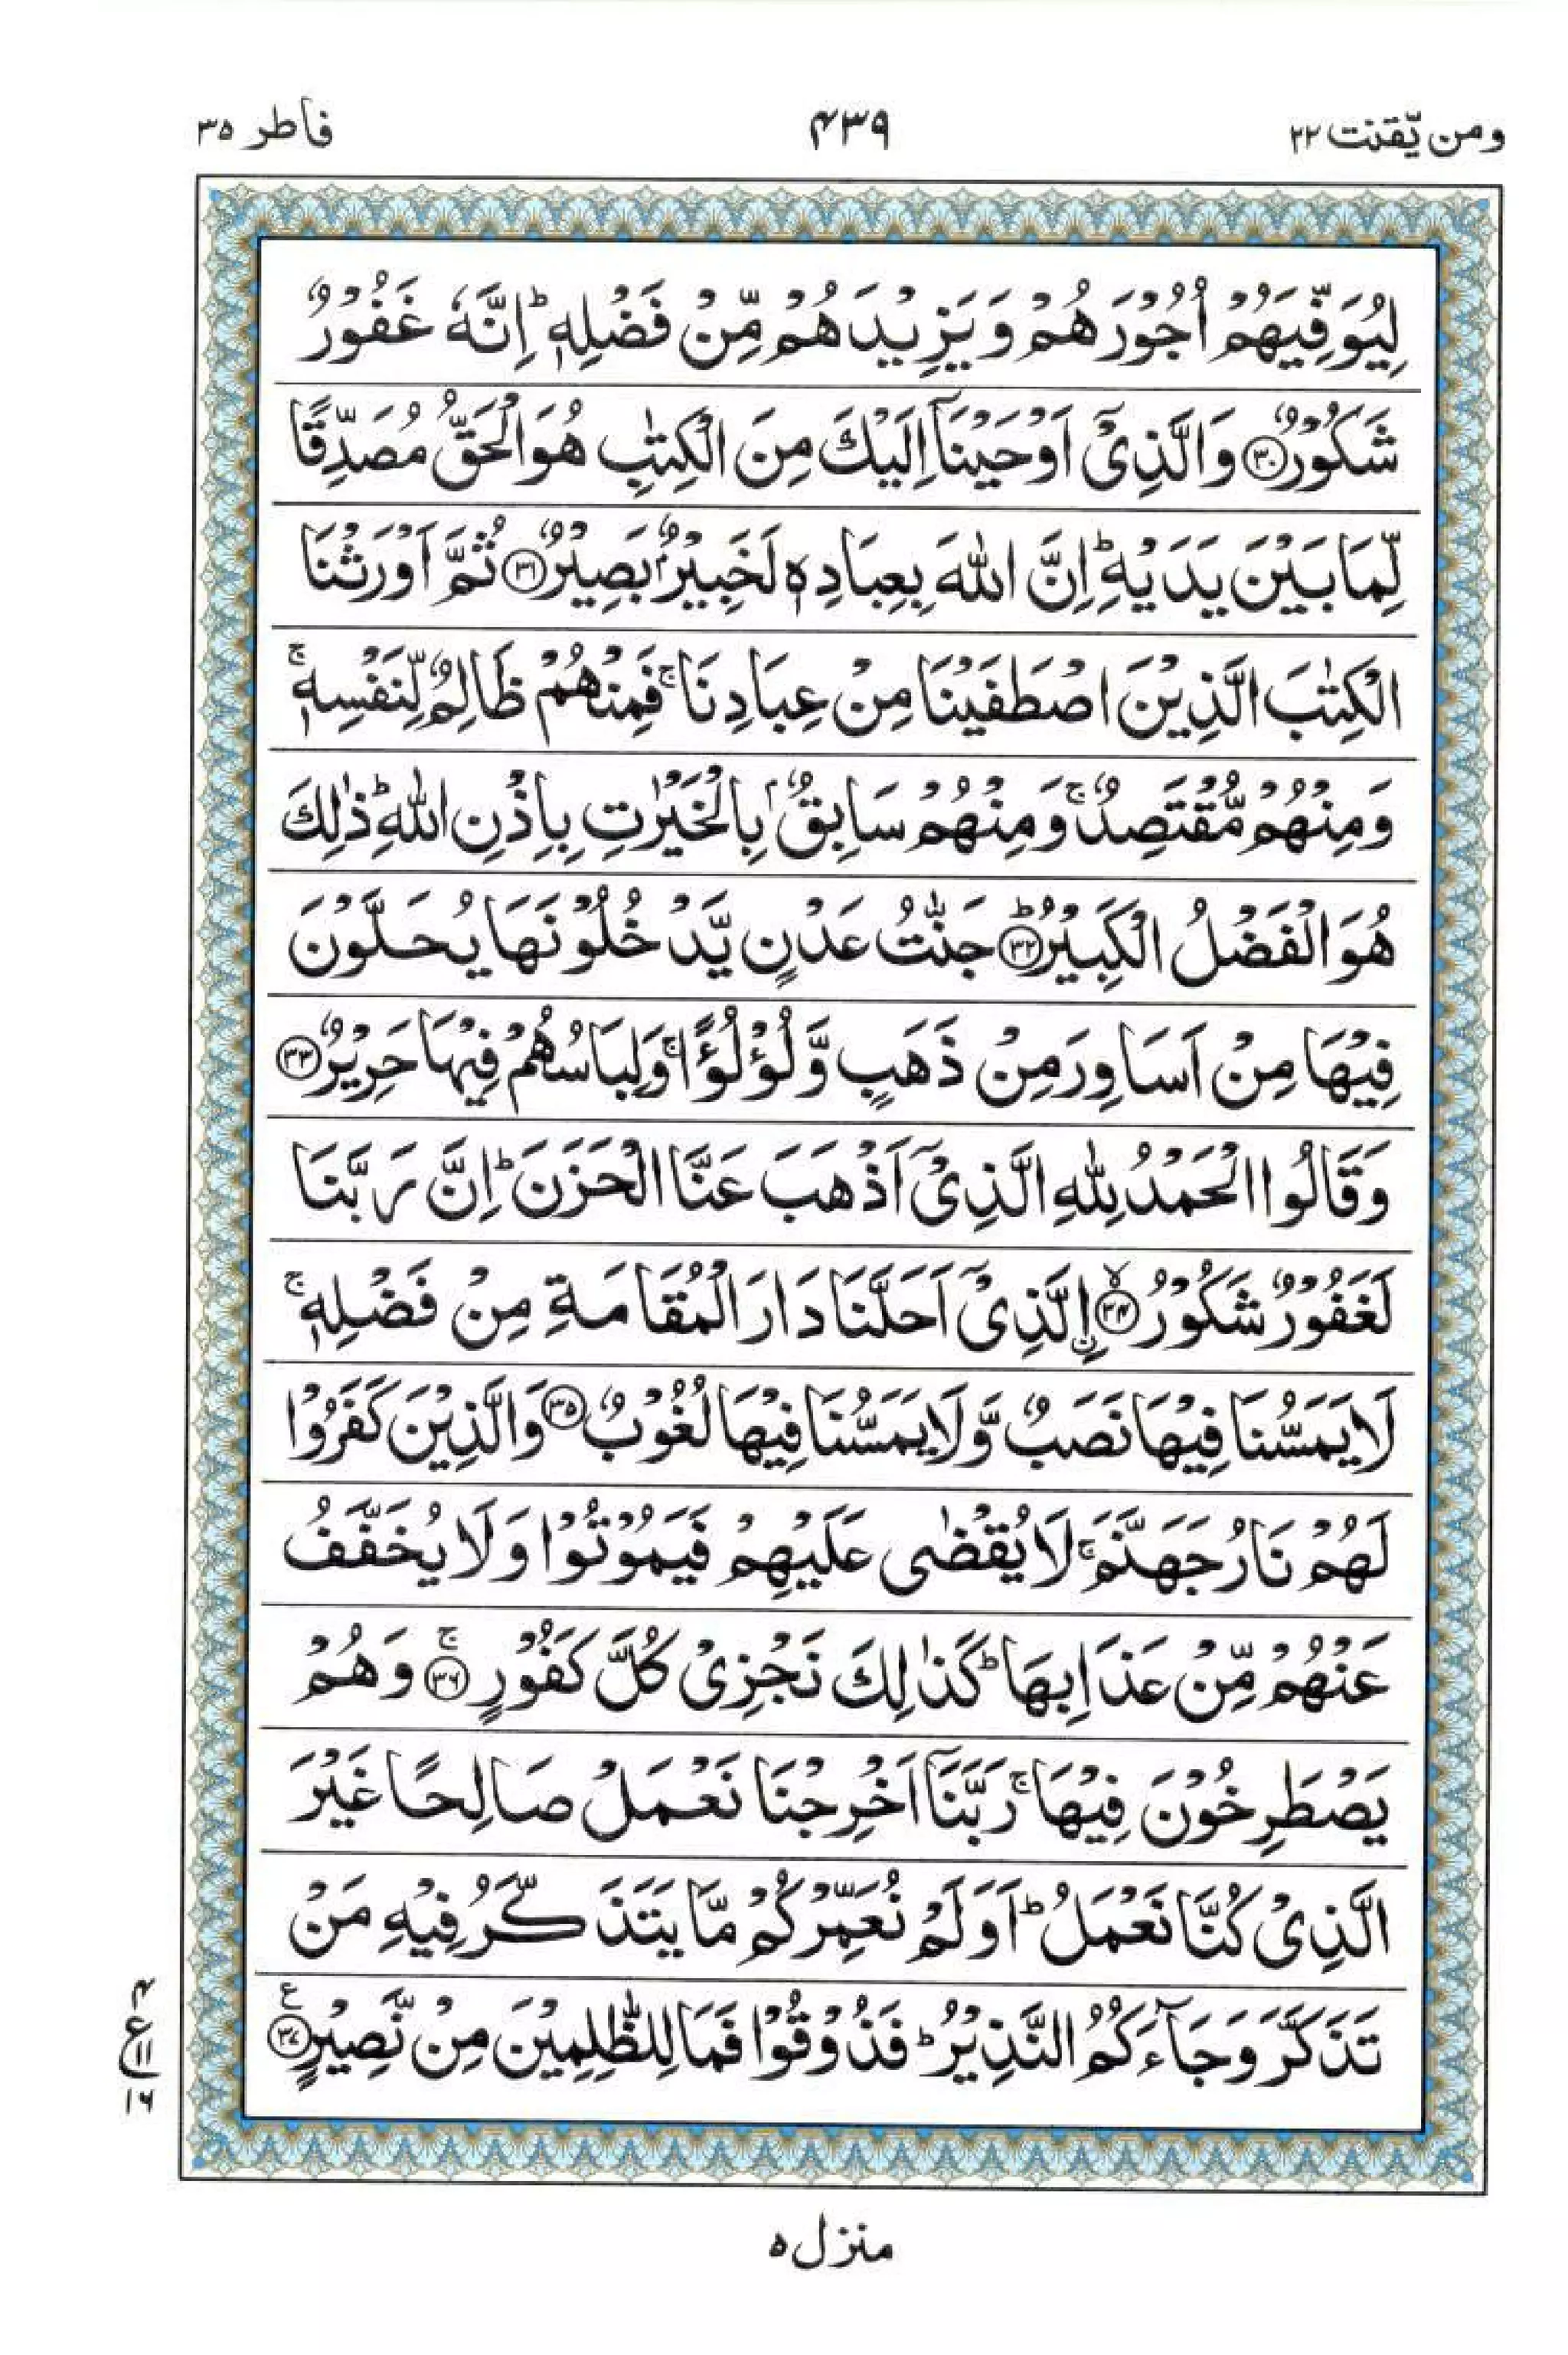 ومن یّقنت ٢٢
۴۳۹
فاطر ۳۵
لِیُوَفِّیَهُمْ اُجُوْرَهُمْ وَ یَزِیْدَهُمْ مِّنْ فَضْلِهٖ ؕ اِنَّهٗ غَفُوْرٌ
شَكُوْرٌ ﴿۳۰﴾ وَ الَّذِیْۤ اَوْحَیْنَاۤ اِلَیْكَ مِنَ الْكِتٰبِ هُوَ الْحَقُّ مُصَدِّقًا
لِّمَا بَیْنَ یَدَیْهِ ؕ اِنَّ اللّٰهَ بِعِبَادِهٖ لَخَبِیْرٌۢ بَصِیْرٌ ﴿۳۱﴾ ثُمَّ اَوْرَثْنَا
الْكِتٰبَ الَّذِیْنَ اصْطَفَیْنَا مِنْ عِبَادِنَا ۚ فَمِنْهُمْ ظَالِمٌ لِّنَفْسِهٖ ۚ
وَ مِنْهُمْ مُّقْتَصِدٌ ۚ وَ مِنْهُمْ سَابِقٌۢ بِالْخَیْرٰتِ بِاِذْنِ اللّٰهِ ؕ ذٰلِكَ
هُوَ الْفَضْلُ الْكَبِیْرُ ؕ﴿۳۲﴾ جَنّٰتُ عَدْنٍ یَّدْخُلُوْنَهَا یُحَلَّوْنَ
فِیْهَا مِنْ اَسَاوِرَ مِنْ ذَهَبٍ وَّ لُؤْلُؤًا ۚ وَ لِبَاسُهُمْ فِیْهَا حَرِیْرٌ ﴿۳۳﴾
وَ قَالُوا الْحَمْدُ لِلّٰهِ الَّذِیْۤ اَذْهَبَ عَنَّا الْحَزَنَ ؕ اِنَّ رَبَّنَا
لَغَفُوْرٌ شَكُوْرُ ۙ﴿۳۴﴾ ِ۟الَّذِیْۤ اَحَلَّنَا دَارَ الْمُقَامَةِ مِنْ فَضْلِهٖ ۚ
لَا یَمَسُّنَا فِیْهَا نَصَبٌ وَّ لَا یَمَسُّنَا فِیْهَا لُغُوْبٌ ﴿۳۵﴾ وَ الَّذِیْنَ كَفَرُوْا
لَهُمْ نَارُ جَهَنَّمَ ۚ لَا یُقْضٰی عَلَیْهِمْ فَیَمُوْتُوْا وَ لَا یُخَفَّفُ
عَنْهُمْ مِّنْ عَذَابِهَا ؕ كَذٰلِكَ نَجْزِیْ كُلَّ كَفُوْرٍ ۚ﴿۳۶﴾ وَ هُمْ
یَصْطَرِخُوْنَ فِیْهَا ۚ رَبَّنَاۤ اَخْرِجْنَا نَعْمَلْ صَالِحًا غَیْرَ
الَّذِیْ كُنَّا نَعْمَلُ ؕ اَوَ لَمْ نُعَمِّرْكُمْ مَّا یَتَذَكَّرُ فِیْهِ مَنْ
تَذَكَّرَ وَ جَآءَكُمُ النَّذِیْرُ ؕ فَذُوْقُوْا فَمَا لِلظّٰلِمِیْنَ مِنْ نَّصِیْرٍ ﴿۳۷﴾ ع
۴
ع ۱۱
۱۶
منزل ۵